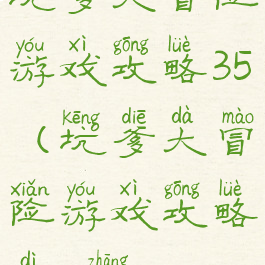 yóu xì gōng lüè
游戏攻略35
kēng diē dà mào
(坑爹大冒
xiǎn yóu xì gōng lüè
险游戏攻略
dì zhāng